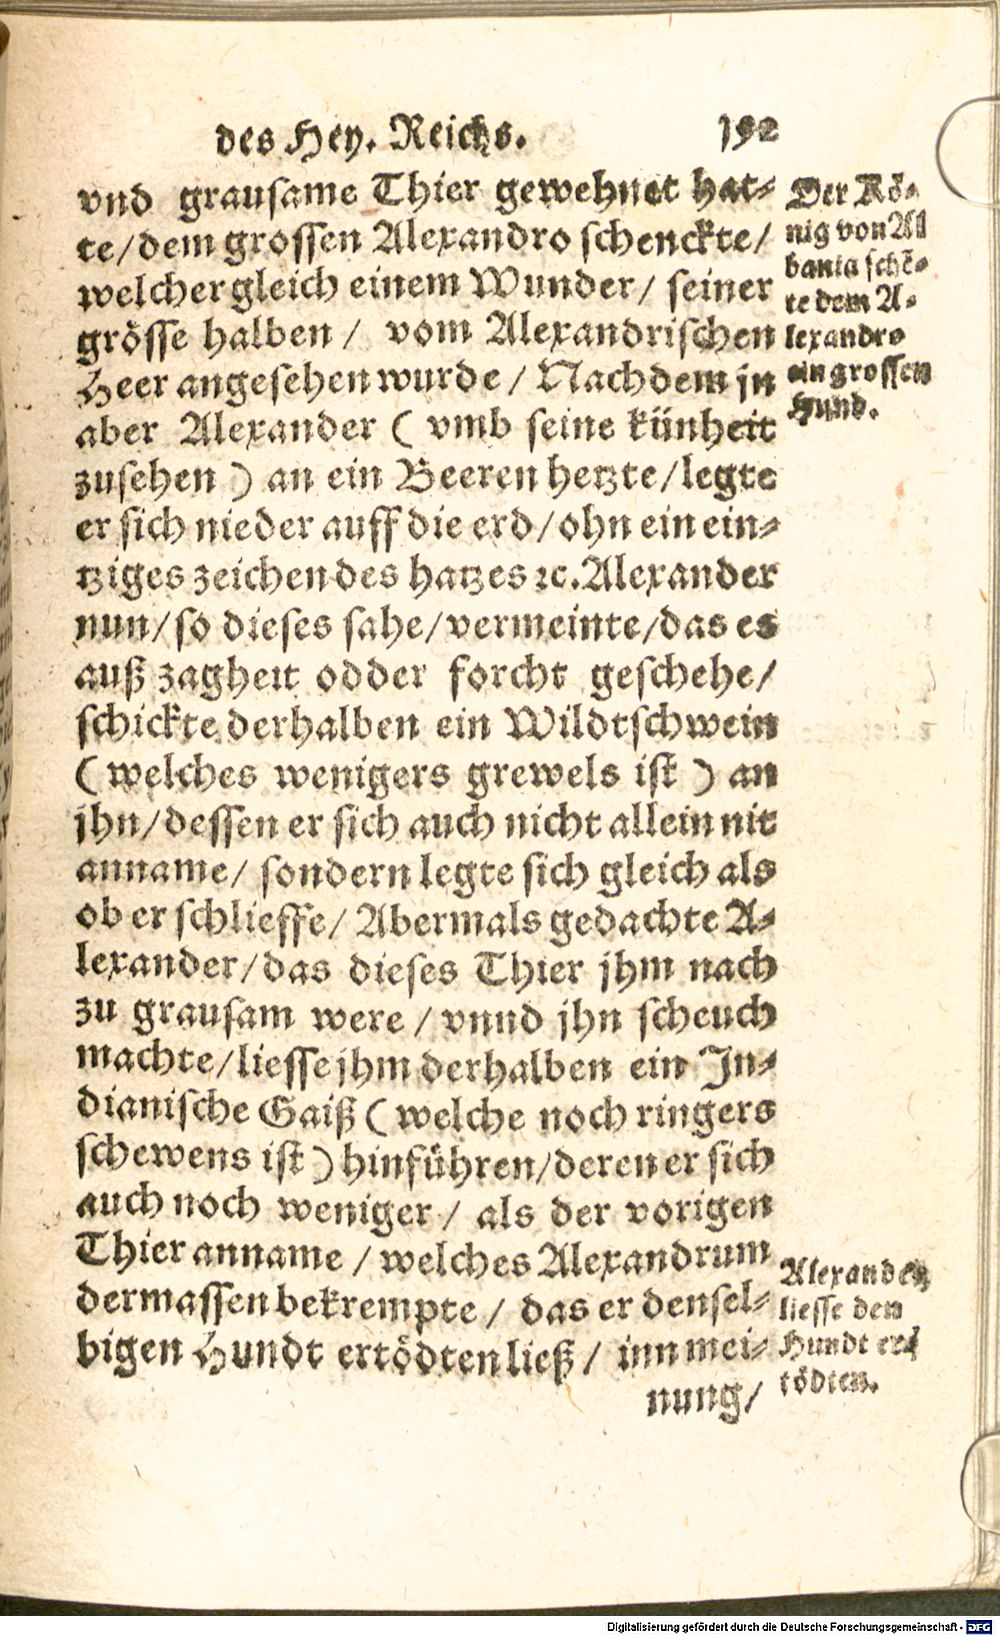 des Hey. Reichs. 192
vnd grausame Thier gewehnet hat-
te/dem grossen Alexandro schenckte/
welcher gleich einem Wunder/ seiner
grösse halben / vom Alexandrischen
Heer angesehen wurde / Nachdem jn
aber Alexander ( vmb seine künheit
zusehen ) an ein Beeren hetzte/legte
er sich nieder auff die erd/ohn ein ein-
tziges zeichen des hatzes ꝛc. Alexander
nun/so dieses sahe/vermeinte/das es
auß zagheit odder forcht geschehe/
schickte derhalben ein Wildtschwein
( welches wenigers grewels ist ) an
jhn/dessen er sich auch nicht allein nit
anname/ sondern legte sich gleich als
ob er schlieffe/ Abermals gedachte A-
lexander/das dieses Thier jhm nach
zu grausam were / vnnd jhn scheuch
machte/liesse jhm derhalben ein In-
dianische Gaiß ( welche noch ringers
schewens ist ) hinführen/deren er sich
auch noch weniger / als der vorigen
Thier anname / welches Alexandrum
dermassen bekrempte / das er densel-
bigen Hundt ertödten ließ / inn mei-
nung/
Der Kö-
nig von Al
bania schē-
te dem A-
lexandro
ein grossen
Hund.
Alexander
liesse den
Hundt er-
tödten.
Digitalisierung gefördert durch die Deutsche Forschungsgemeinschaft - DFG